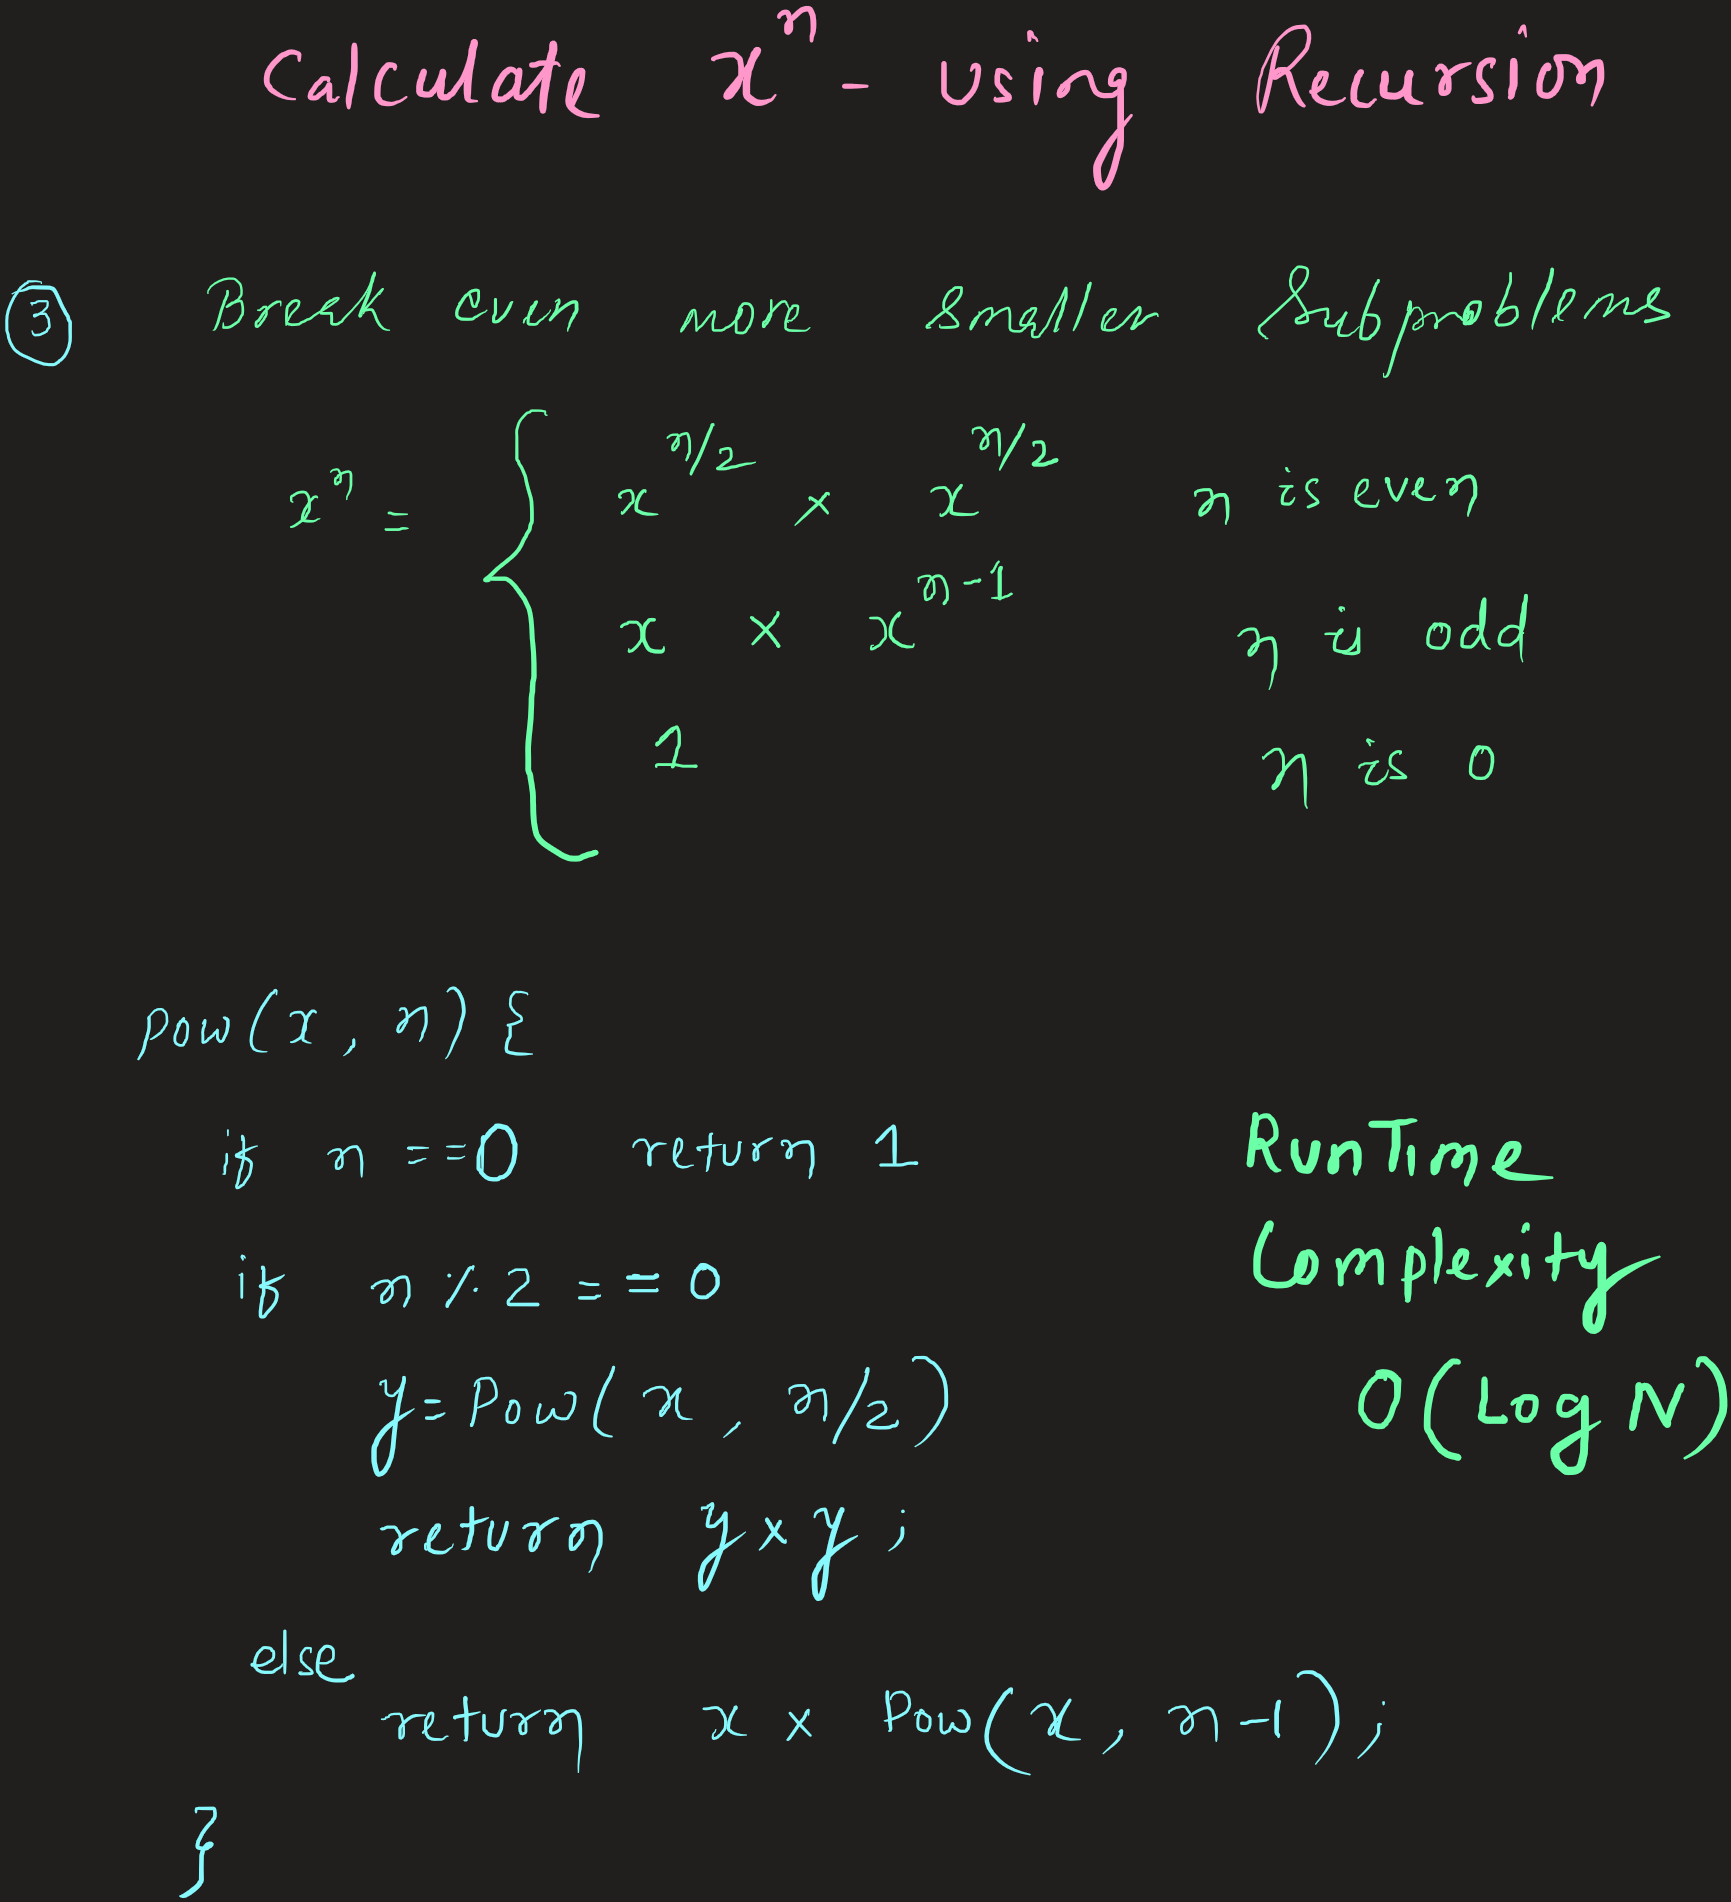 Calculate xⁿ - using Recursion
③ Break even more smaller subproblems
xⁿ = { x^(n/2) × x^(n/2) n is even
x × x^(n-1) n is odd
1 n is 0
pow(x, n) {
if n == 0 return 1
RunTime
if n % 2 == 0
Complexity
y = Pow(x, n/2)
O(Log N)
return y × y ;
else
return x × Pow(x, n-1);
}